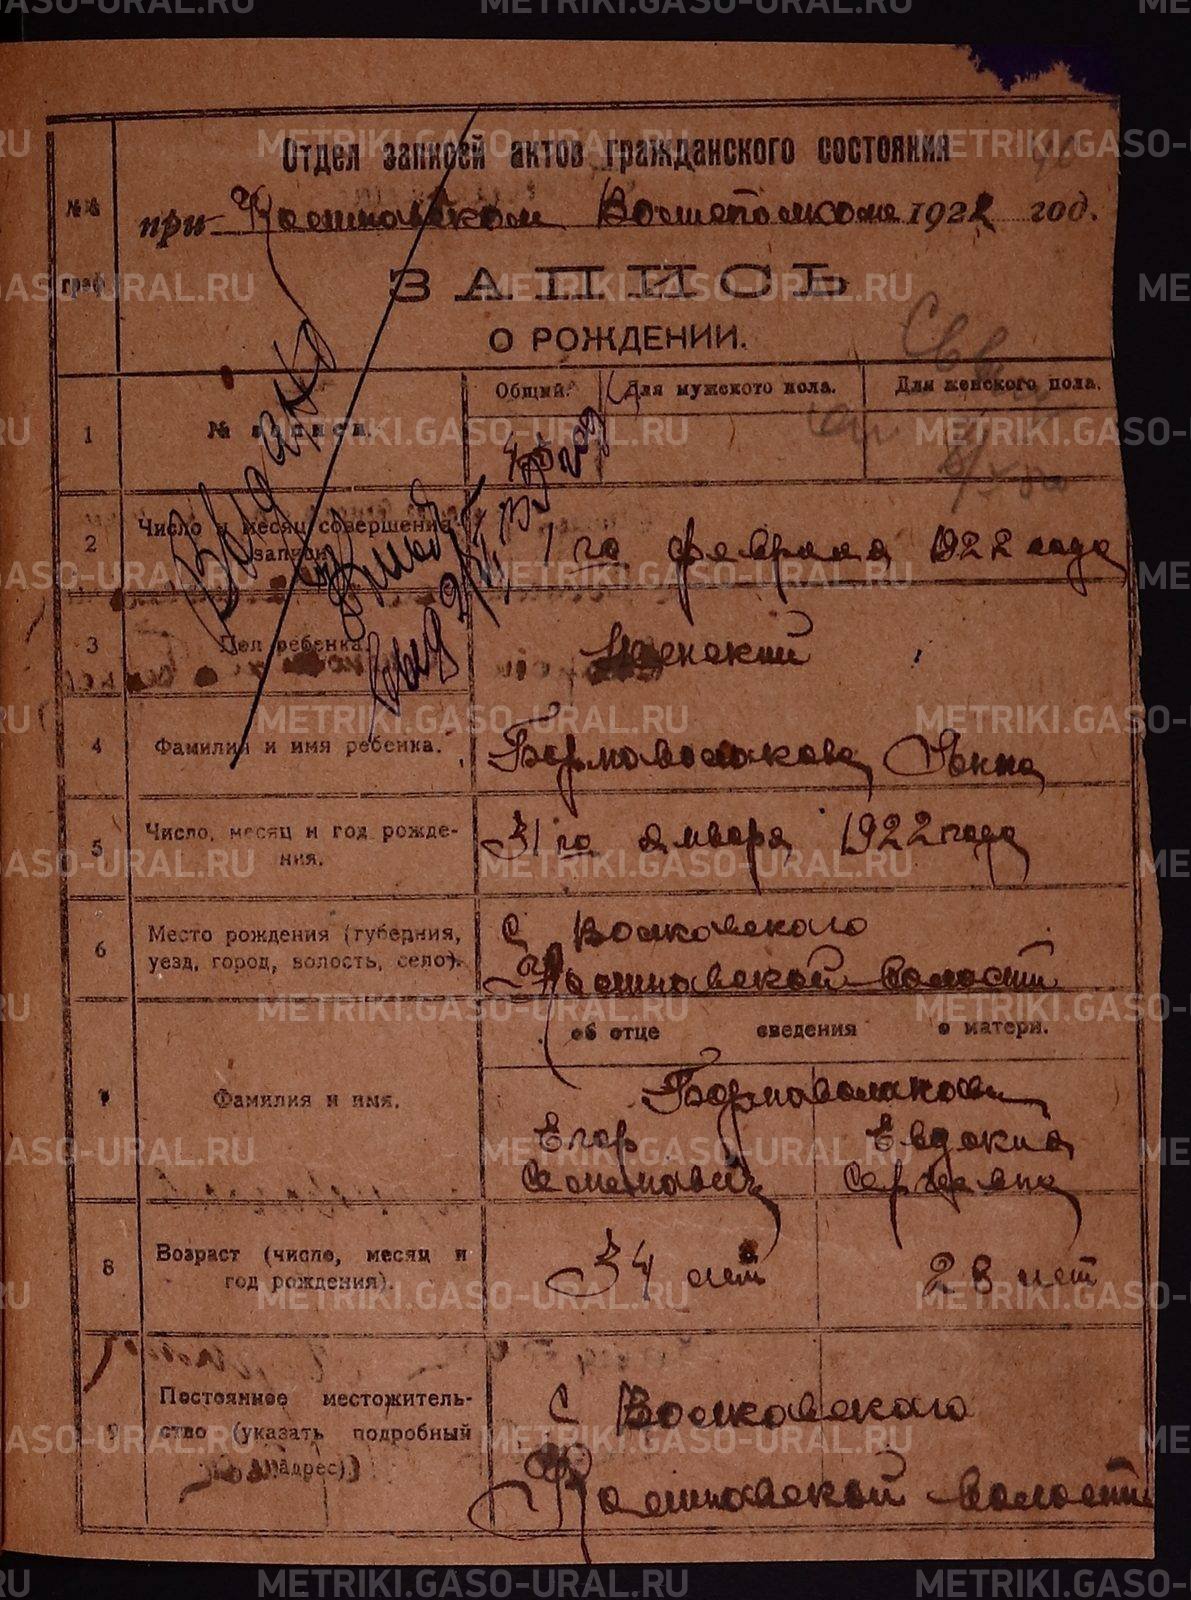 Отдел записей актов гражданского состояния
№№ граф.
при Волисполкоме 1922 год.
ЗАПИСЬ
О РОЖДЕНИИ.
Общий. Для мужского пола. Для женского пола.
1 № записи.
2 Число и месяц совершения записи. 1го февраля 1922 года
3 Пол ребенка. Женский
4 Фамилия и имя ребенка. Бормоволокова Анна
5 Число, месяц и год рождения. 31го января 1922 года
6 Место рождения (губерния, уезд, город, волость, село). С Волковского
волости
об отце сведения о матери.
7 Фамилия и имя. Бормоволоковы
Егор Евдокия
Семенович Сергеевна
8 Возраст (число, месяц и год рождения). 34 лет 28 лет
9 Постоянное местожительство (указать подробный адрес) С Волковского
волости
METRIKI.GASO-URAL.RU